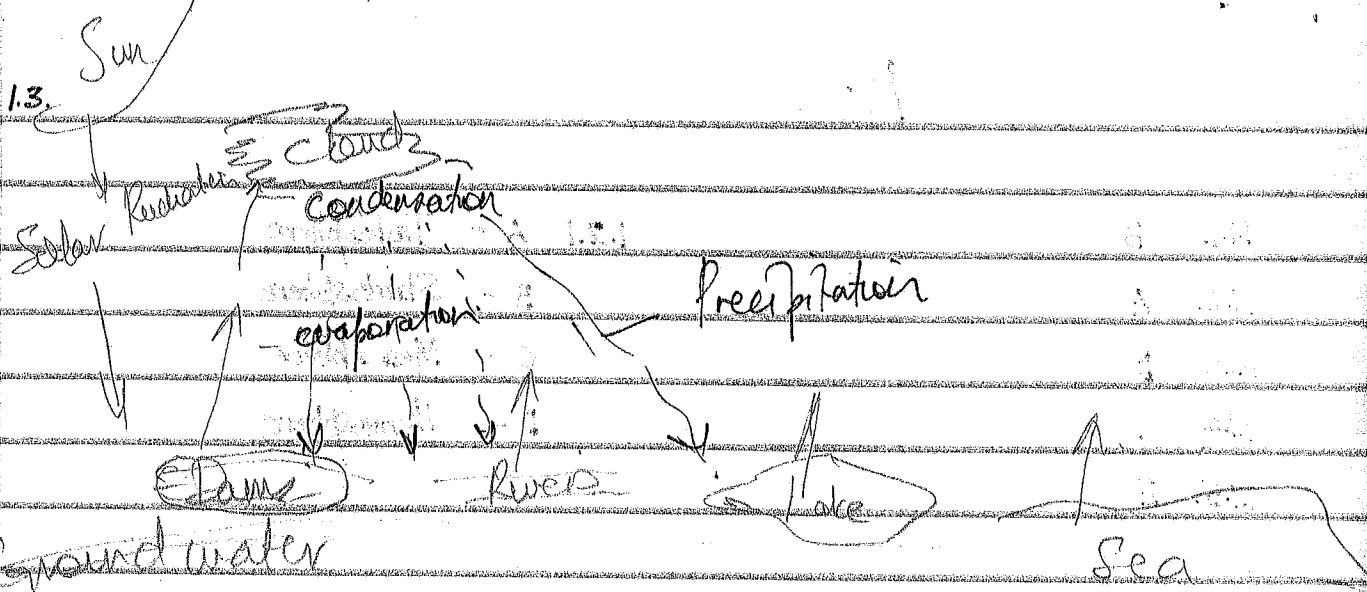 Sun
1.3.
Clouds
Solar Radiation
condensation
evaporation
Precipitation
Dams
Rivers
Lake
Ground water
Sea